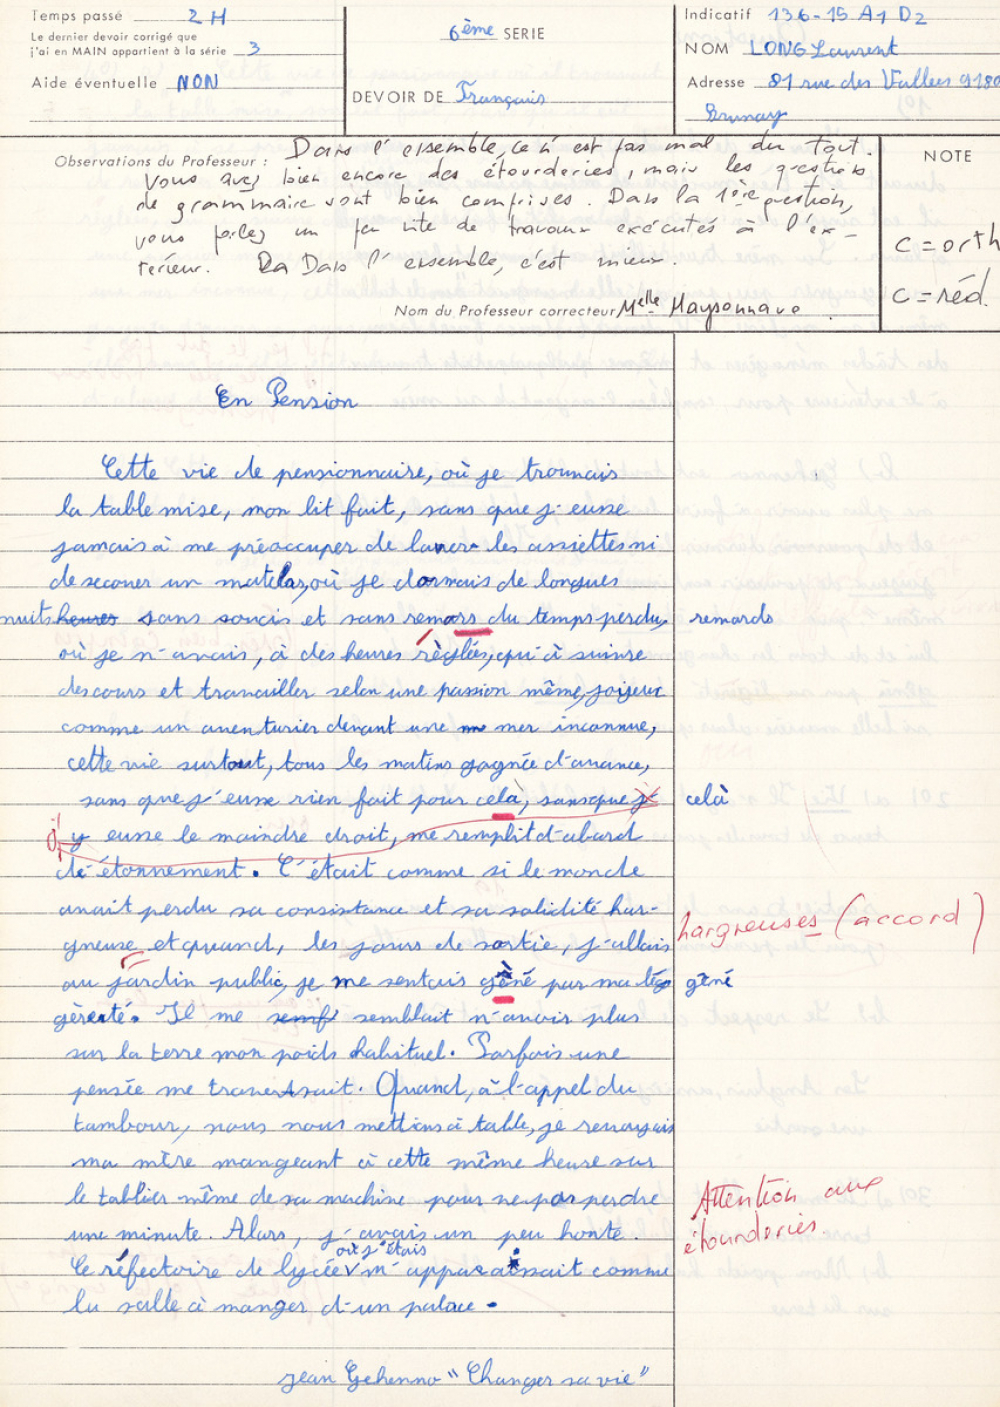 Temps passé 2H
Le dernier devoir corrigé que
j'ai en MAIN appartient à la série 3
Aide éventuelle NON
6ème SERIE
DEVOIR DE Français
Indicatif 136-15 A1 D2
NOM LONG Laurent
Adresse 81 rue des Vallées 9180
Brunoy
Observations du Professeur : Dans l'ensemble, ce n'est pas mal du tout.
Vous avez bien encore des étourderies, mais les questions
de grammaire sont bien comprises. Dans la 1ère question,
vous parlez un peu vite de travaux exécutés à l'ex-
térieur. Dans l'ensemble, c'est mieux.
Nom du Professeur correcteur Melle Maysonnave
NOTE
C = orth
C = réd.
En Pension
Cette vie de pensionnaire, où je trouvais
la table mise, mon lit fait, sans que j'eusse
jamais à me préoccuper de laver les assiettes ni
de secouer un matelas, où je dormais de longues
nuits heures sans soucis et sans remors du temps perdu, remords
où je n'avais, à des heures règlées, qu'à suivre
des cours et travailler selon une passion même, joyeux
comme un aventurier devant une mer inconnue,
cette vie surtout, tous les matins gagnée d'avance,
sans que j'eusse rien fait pour celà, sans que j' celà
j'y eusse le moindre droit, me remplit d'abord
d'étonnement. C'était comme si le monde
avait perdu sa consistance et sa solidité har-
gneuse, et quand, les jours de sortie, j'allais hargneuses (accord)
au jardin public, je me sentais gèné par ma légè gêné
gèreté. Il me semblait n'avoir plus
sur la terre mon poids habituel. Parfois une
pensée me traversait. Quand, à l'appel du
tambour, nous nous mettions à table, je revoyais
ma mère mangeant à cette même heure sur
le tablier même de sa machine pour ne pas perdre
une minute. Alors, j'avais un peu honte. Attention aux étourderies.
où j'étais
Le réfectoire de lycée m'apparaissait comme
la salle à manger d'un palace.
jean Gehenno "Changer sa vie"